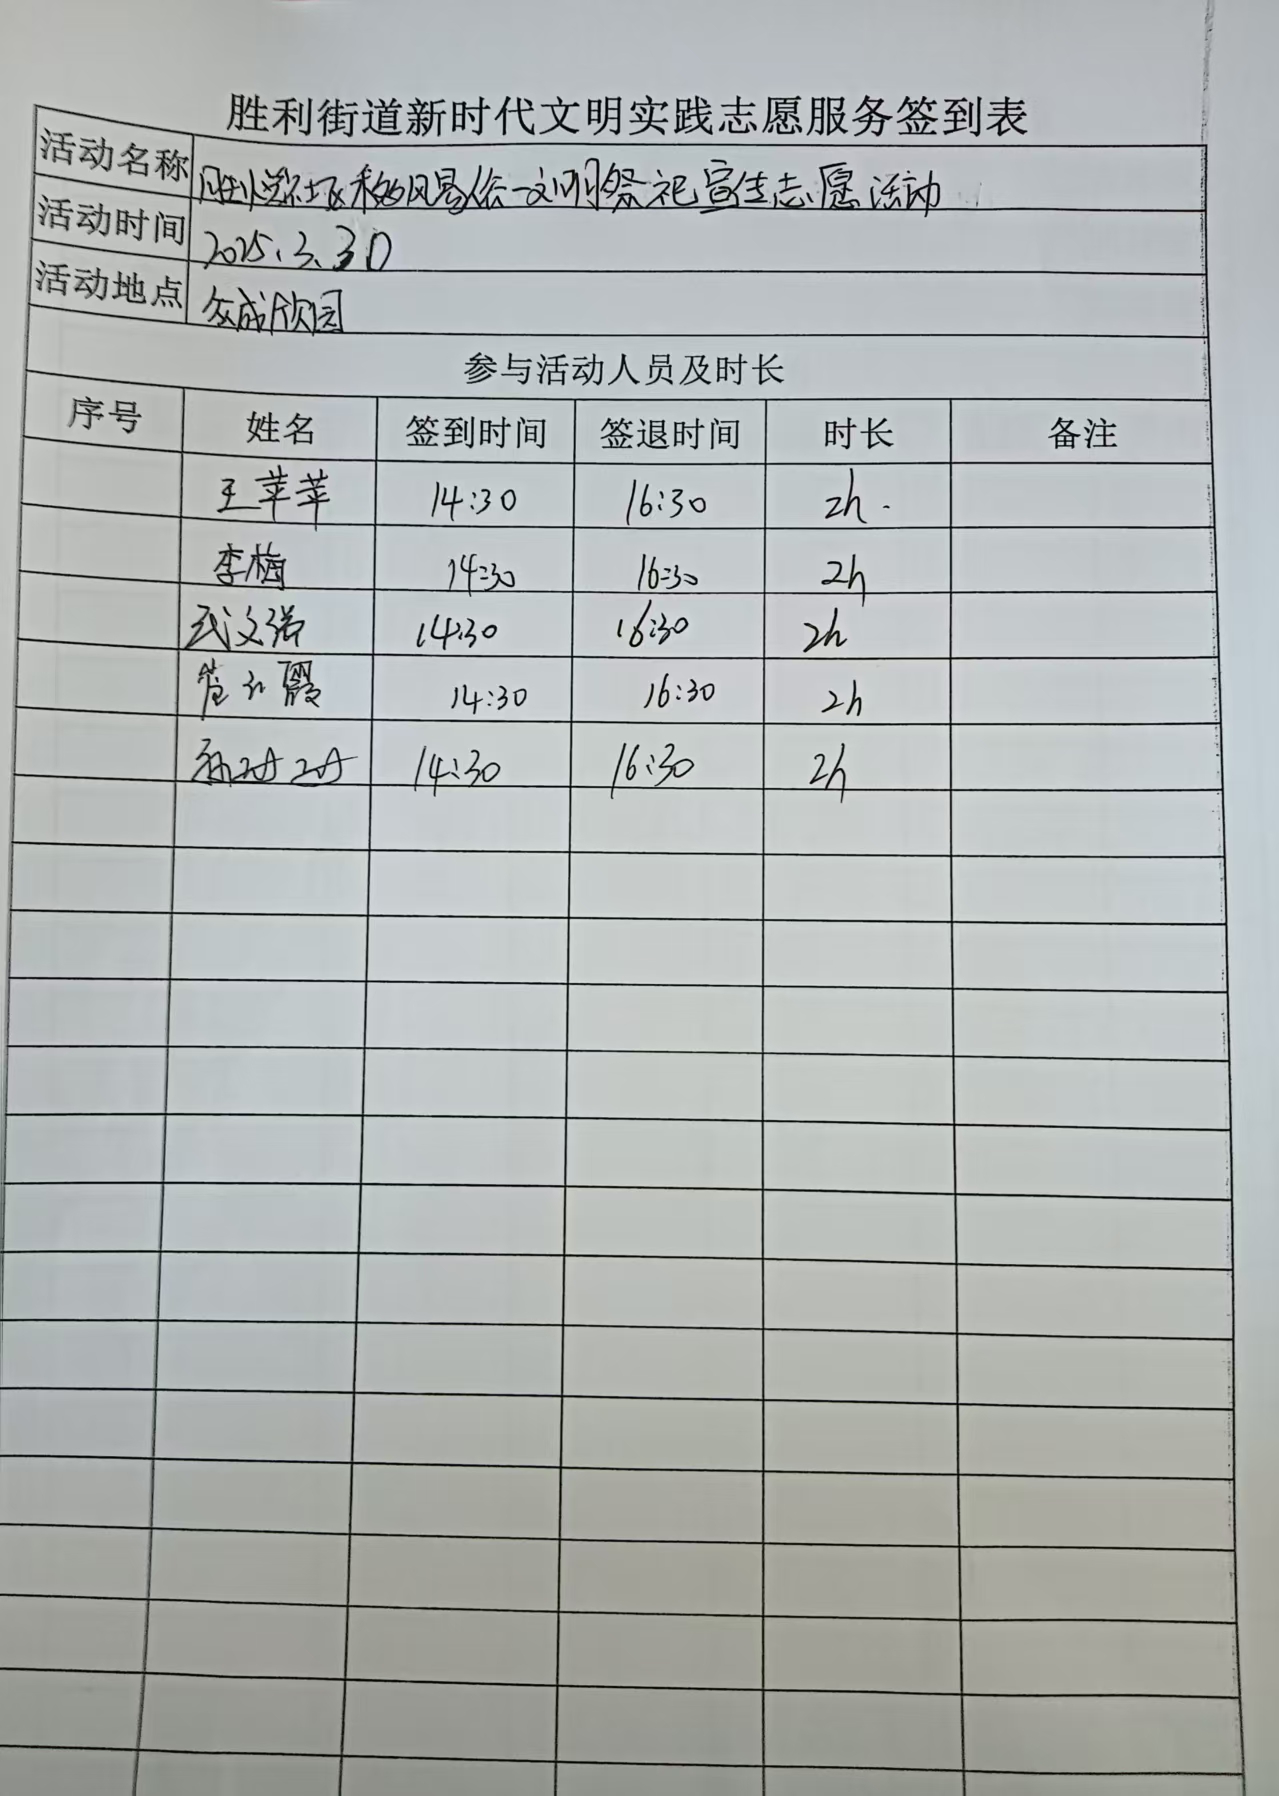 胜利街道新时代文明实践志愿服务签到表
活动名称 移风易俗-文明祭祀宣传志愿活动
活动时间 2025.3.30
活动地点 众成欣园
参与活动人员及时长
序号 姓名 签到时间 签退时间 时长 备注
王苹苹 14:30 16:30 2h.
李梅 14:30 16:30 2h
武文 14:30 16:30 2h
霞 14:30 16:30 2h
14:30 16:30 2h